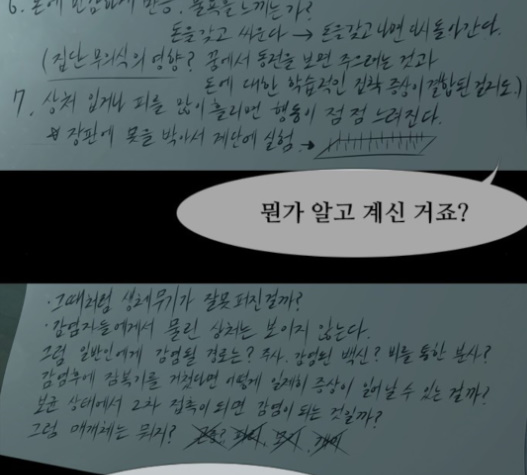 6. 돈에 민감하게 반응. 불록을 느끼는가?
돈을갖고 싸운다 → 돈을갖고나면 다시돌아간다.
(집단 무의식의 영향? 꿈에서 동전을 보면 주으려는 것과
돈에 대한 학습적인 집착 증상이 결합된 걸지도.)
7. 상처 입거나 피를 많이 흘리면 행동이 점점 느려진다.
※ 장판에 못을 박아서 제단에 실험. →
뭔가 알고 계신 거죠?
· 그때처럼 생체무기가 잘못 퍼진걸까?
· 감염자들에게서 물린 상처는 보이지 않는다.
그럼 일반인에게 감염될 경로는? 주사. 감염된 백신? 비를 통한 분사?
감염후에 잠복기를 거쳤다면 어떻게 일제히 증상이 일어날 수 있는 걸까?
보균 상태에서 2차 접촉이 되면 감염이 되는 것일까?
그럼 매개체는 뭐지? 파리, 모기,